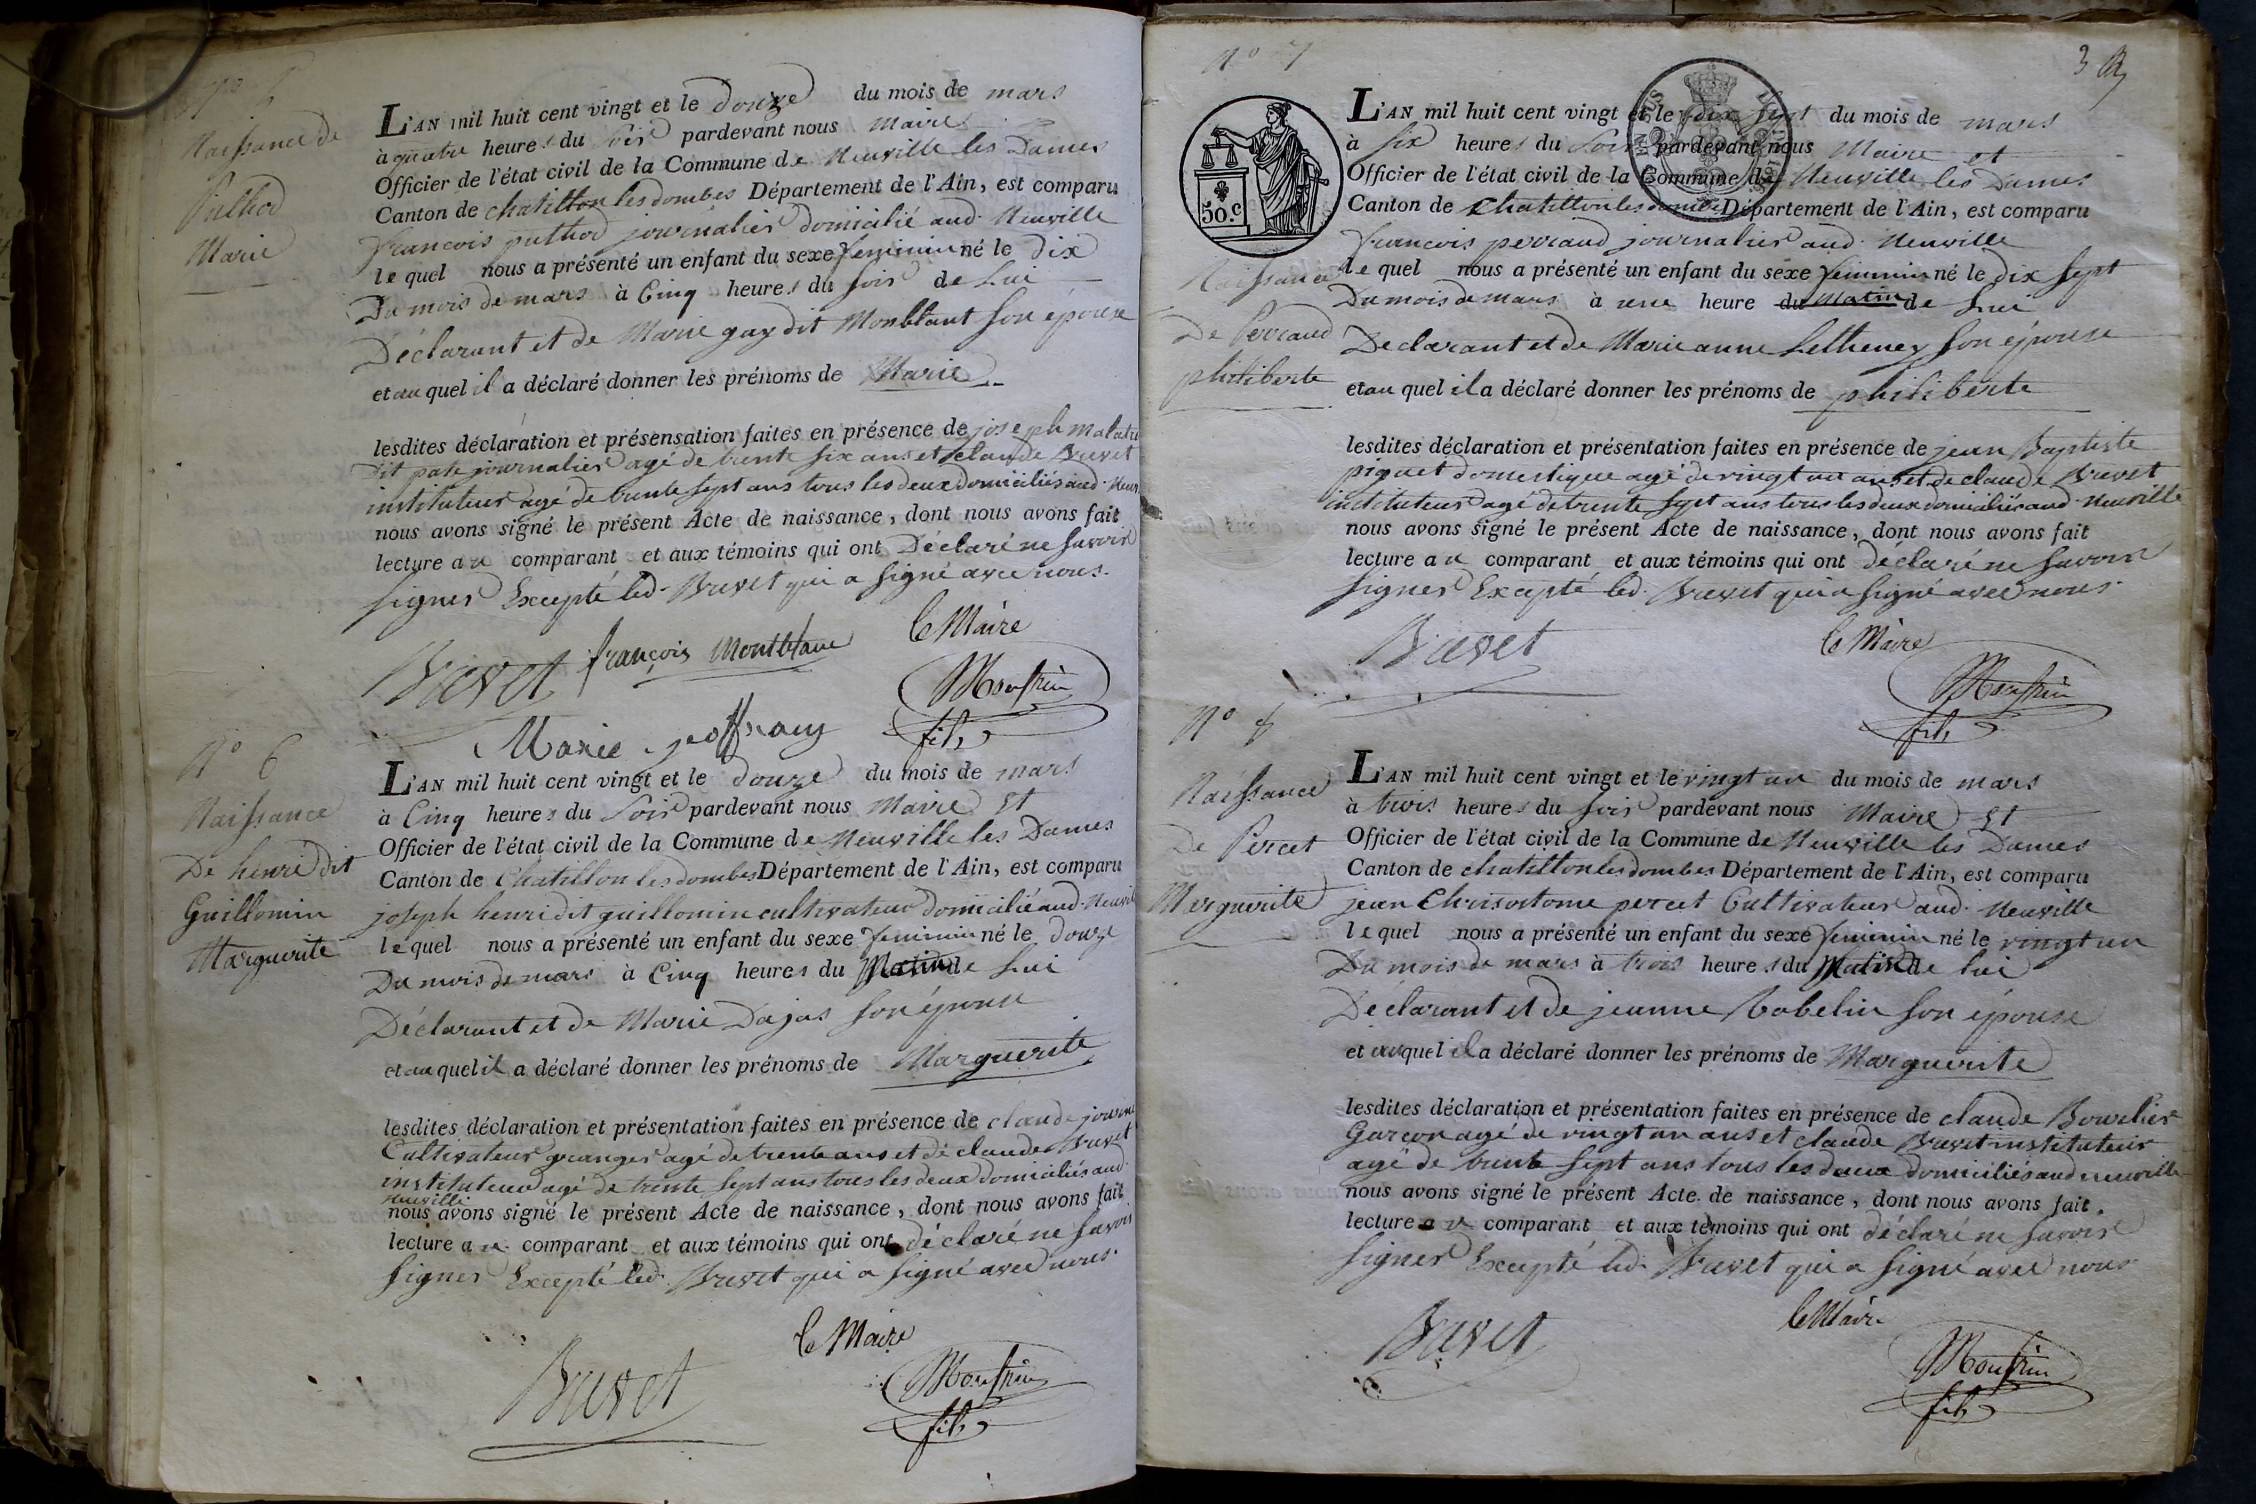 N° 5
Naissance de
Puthod
Marie
L'AN mil huit cent vingt et le douze du mois de mars
à quatre heures du soir pardevant nous Maire
Officier de l'état civil de la Commune de Neuville les Dames
Canton de chatillon les dombes Département de l'Ain, est comparu
françois puthod journalier domicilié aud. Neuville
lequel nous a présenté un enfant du sexe feminin né le dix
Du mois de mars à Cinq heures du soir de Lui
Déclarant et de Marie gay dit Monblant son épouse
et au quel il a déclaré donner les prénoms de Marie
lesdites déclaration et présensation faites en présence de joseph
dit pate journalier agé de trente six ans et claude Buvet
instituteur agé de trente sept ans tous les deux domiciliés aud. Neuv
nous avons signé le présent Acte de naissance, dont nous avons fait
lecture au comparant et aux témoins qui ont Déclaré ne savoir
signer Excepté led. Buvet qui a signé avec nous.
Buvet françois Montblanc Le Maire
Marie geoffray
fils
N° 6
Naissance
De henri dit
Guillomin
Marguerite
L'AN mil huit cent vingt et le douze du mois de mars
à Cinq heures du Soir pardevant nous Maire Et
Officier de l'état civil de la Commune de Neuville les Dames
Canton de Chatillon les dombes Département de l'Ain, est comparu
joseph henri dit guillomin cultivateur domicilié aud. Neuvil
lequel nous a présenté un enfant du sexe feminin né le douze
Du mois de mars à Cinq heures du Matin de Lui
Déclarant et de Marie Dajas son épouse
et au quel il a déclaré donner les prénoms de Marguerite
lesdites déclaration et présentation faites en présence de claude
Cultivateur granger agé de trente ans et de claude Buvet
instituteur agé de trente sept ans tous les deux domiciliés aud.
neuville
nous avons signé le présent Acte de naissance, dont nous avons fait
lecture au comparant et aux témoins qui ont déclaré ne savoir
signer Excepté led. Buvet qui a signé avec nous.
Le Maire
Buvet
fils
N° 7
3
50.c
Naissance
De Perraud
philiberte
L'AN mil huit cent vingt et le dix sept du mois de mars
à six heures du Soir pardevant nous Maire et
Officier de l'état civil de la Commune de Neuville les Dames
Canton de Chatillon les dombes Département de l'Ain, est comparu
françois perraud journalier aud. Neuville
lequel nous a présenté un enfant du sexe feminin né le dix sept
Du mois de mars à une heure du Matin de Lui
Declarant et de Marie anne Letheney son épouse
et au quel il a déclaré donner les prénoms de philiberte
lesdites déclaration et présentation faites en présence de jean Baptiste
piquet domestique agé de vingt un ans et de claude Buvet
instituteur agé de trente sept ans tous les deux domiciliés aud. Neuville
nous avons signé le présent Acte de naissance, dont nous avons fait
lecture au comparant et aux témoins qui ont déclaré ne savoir
signer Excepté led. Buvet qui a signé avec nous.
Buvet Le Maire
fils
N° 8
Naissance
De Percet
Marguerite
L'AN mil huit cent vingt et le vingt un du mois de mars
à trois heures du soir pardevant nous Maire Et
Officier de l'état civil de la Commune de Neuville les Dames
Canton de chatillon les dombes Département de l'Ain, est comparu
jean Chrisostome percet Cultivateur aud. Neuville
lequel nous a présenté un enfant du sexe feminin né le vingt un
Du mois de mars à trois heures du Matin de lui
Déclarant et de jeanne Robelin son épouse
et au quel il a déclaré donner les prénoms de Marguerite
lesdites déclaration et présentation faites en présence de claude Bourlier
Garçon agé de vingt un ans et claude Buvet instituteur
agé de trente sept ans tous les deux domiciliés aud neuville
nous avons signé le présent Acte de naissance, dont nous avons fait
lecture au comparant et aux témoins qui ont déclaré ne savoir
signer Excepté led. Buvet qui a signé avec nous
Buvet Le Maire
fils